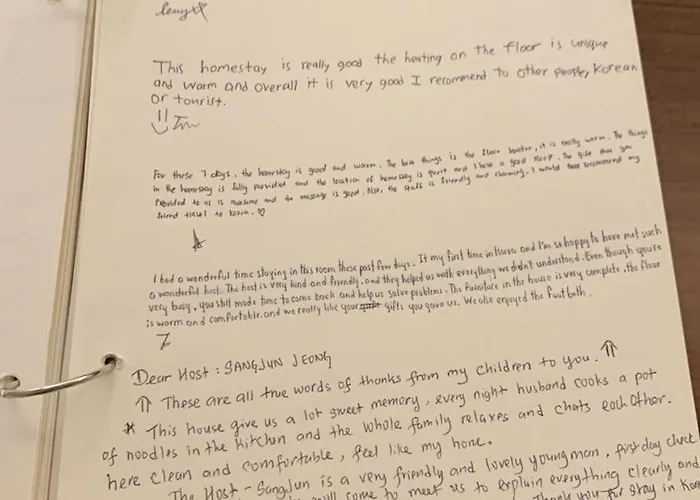 This homestay is really good the heating on the floor is unique
and warm and overall it is very good I recommend to other people, Korean
or tourist.
For these 7 days, the homestay is good and warm. The best things is the floor heater, it is really warm. The things
in the homestay is fully provided and the location of homestay is quiet and I have a good sleep. The gift that you
provided to us is awesome and the message is good. Also, the staff is friendly and charming. I would have recommend my
friend travel to Korea. ♡
I had a wonderful time staying in this room these past few days. It my first time in Korea and I'm so happy to have met such
a wonderful host. The host is very kind and friendly, and they helped us with everything we didn't understand. Even though you're
very busy, you still made time to come back and help us solve problems. The furniture in the house is very complete, the floor
is warm and comfortable, and we really like your gifts you gave us. We also enjoyed the foot bath.
Z
Dear Host : SANGJUN JEONG
⇑ These are all true words of thanks from my children to you. ⇑
* This house give us a lot sweet memory, every night husband cooks a pot
of noodles in the kitchen and the whole family relaxes and chats each other.
here clean and comfortable, feel like my home.
The Host - Sangjun is a very friendly and lovely youngman, first day check
will come to meet us to explain everything clearly and
Thank you for stay in